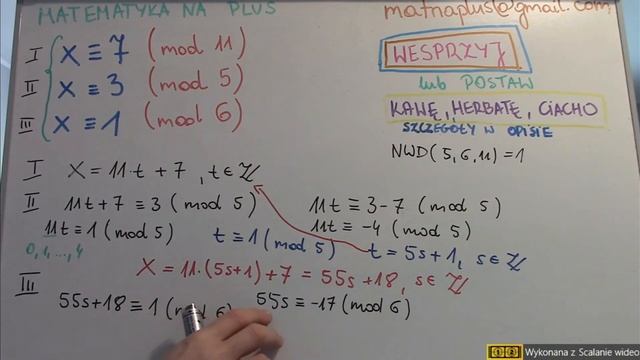 MATEMATYKA NA PLUS
matnaplus@gmail.com
I x ≡ 7 (mod 11)
II x ≡ 3 (mod 5)
III x ≡ 1 (mod 6)
WESPRZYJ
lub POSTAW
KAWĘ, HERBATĘ, CIACHO
SZCZEGÓŁY W OPISIE
NWD(5,6,11)=1
I x = 11·t + 7, t∈ℤ
II 11t+7 ≡ 3 (mod 5) 11t ≡ 3-7 (mod 5)
11t ≡ -4 (mod 5)
11t ≡ 1 (mod 5) t ≡ 1 (mod 5) t = 5s+1, s∈ℤ
0,1,...,4
x = 11·(5s+1)+7 = 55s+18, s∈ℤ
III 55s+18 ≡ 1 (mod 6) 55s ≡ -17 (mod 6)
Wykonana z Scalanie wideo